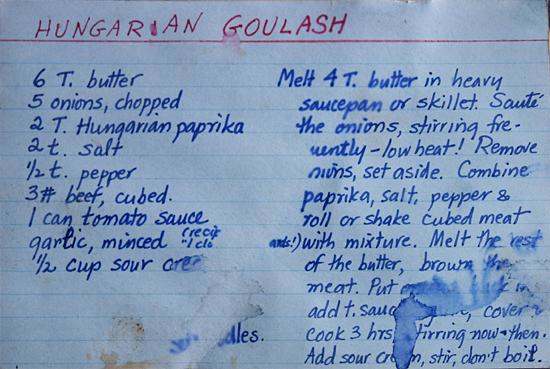 HUNGARIAN GOULASH
6 T. butter
5 onions, chopped
2 T. Hungarian paprika
2 t. salt
1/2 t. pepper
3# beef, cubed.
1 can tomato sauce
garlic, minced
1/2 cup sour
Melt 4 T. butter in heavy
saucepan or skillet. Sauté
the onions, stirring fre-
uently - low heat! Remove
set aside. Combine
paprika, salt, pepper &
roll or shake cubed meat
with mixture. Melt the rest
of the butter, brown the
meat. Put in
add t. sauce, cover
cook 3 hrs stirring now + then.
Add sour cream, stir, don't boil.